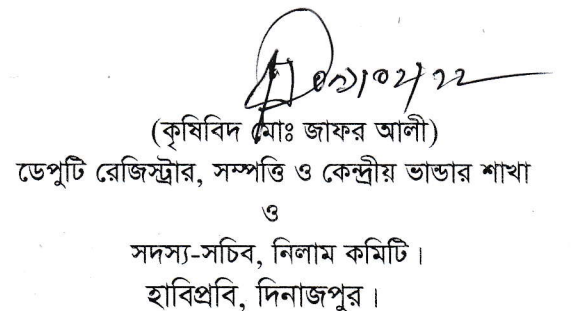 (কৃষিবিদ মোঃ জাফর আলী)
ডেপুটি রেজিস্ট্রার, সম্পত্তি ও কেন্দ্রীয় ভান্ডার শাখা
ও
সদস্য-সচিব, নিলাম কমিটি।
হাবিপ্রবি, দিনাজপুর।